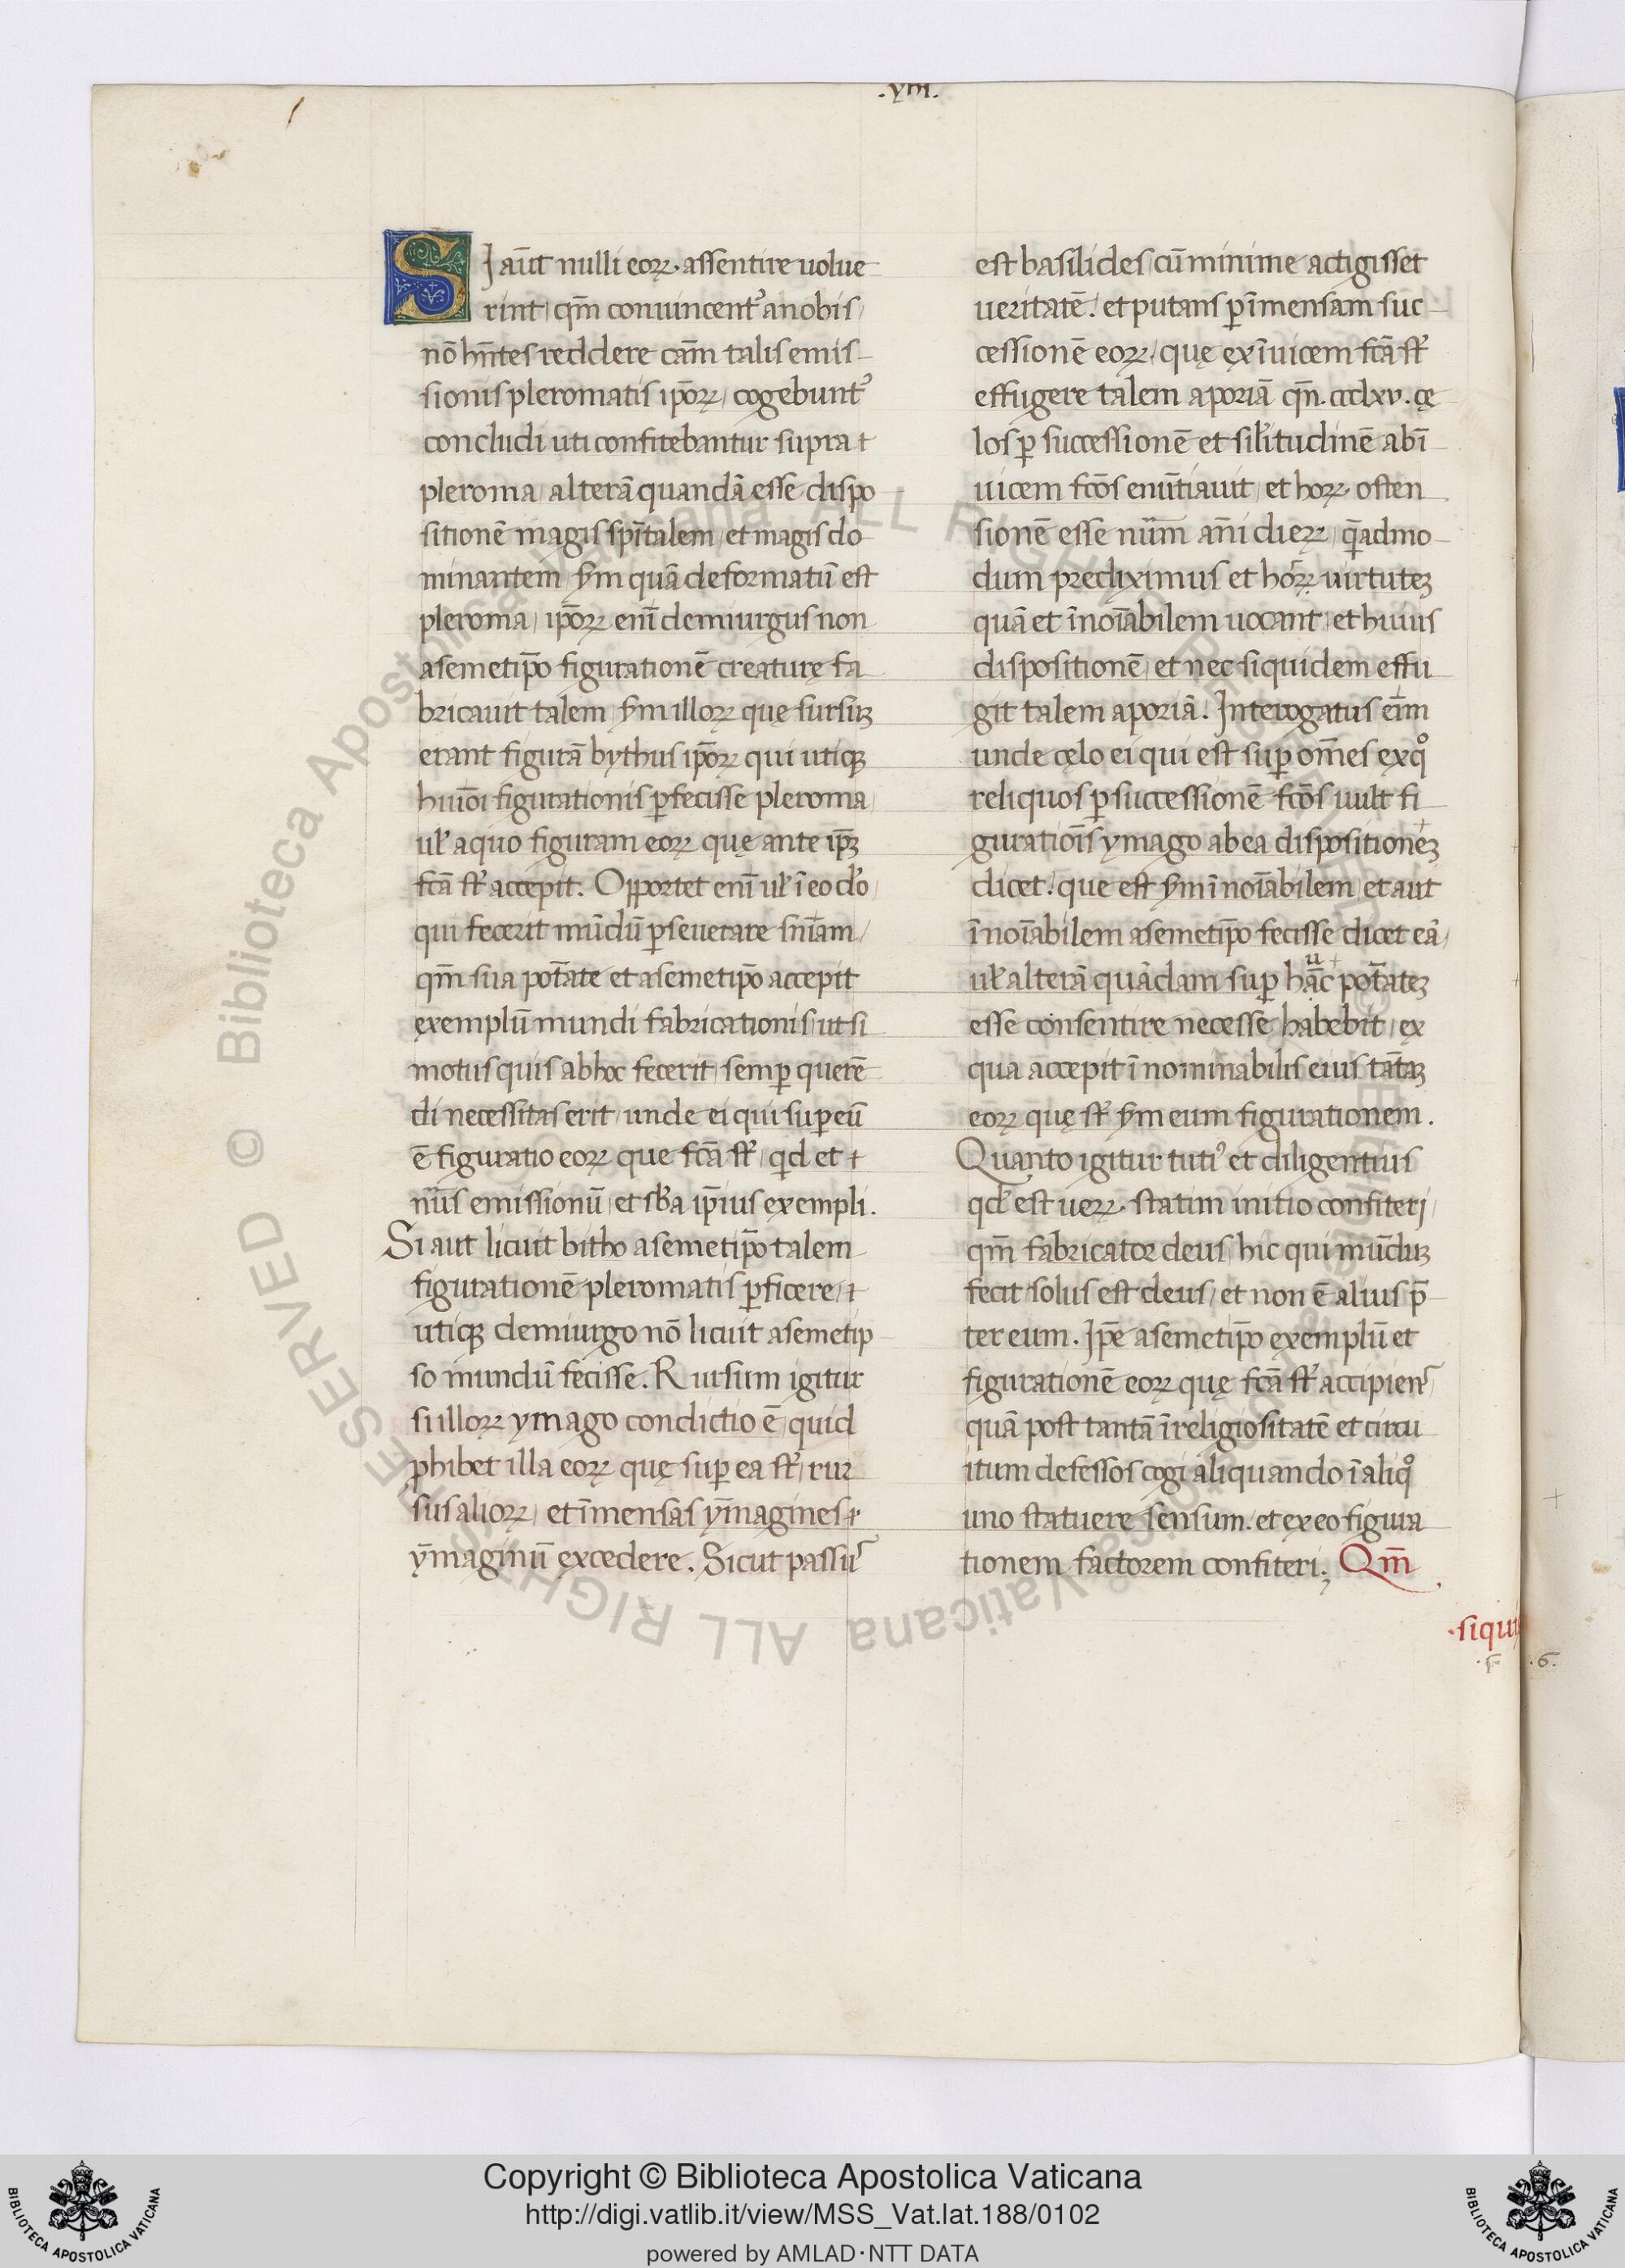 .xiii.
SJ aūt nulli eoꝝ. assentire uolue-
rint, qm̄ conuincentᷣ a nobis,
nō hn̄tes reddere cām talis emis-
sionis pleromatis ip̄oꝝ, cogebuntᷣ
concludi uti confitebantur supra
pleroma, alterā quandā esse dispo
sitionē magis sp̄italem, et magis do-
minantem, ẜm quā deformatū est
pleroma, ip̄oꝝ enī demiurgus non
a semetip̄o figurationē creaturę fa-
bricauit talem, ẜm illoꝝ quę sursuꝫ
erant figurā bythus ip̄oꝝ qui utiqꝫ
huiōi figurationis ꝑfecisse pleroma,
ul̓ a quo figuram eoꝝ quę ante ip̄ꝫ
fcā sͭ accepit. Opportet enī ul̓ ī eo dō,
qui fecerit mūdū ꝑseuerare sn̄iam,
qm̄ sua potāte et a semetip̄o accepit
ęxemplū mundi fabricationis, ut si
motus quis ab hoc fecerit, semꝑ querē-
di necessitas erit, unde ei qui suꝑ eū
ē figuratio eoꝝ que fcā sͭ, qd et
nūs emissionū, et sb̄a ip̄ius exempli.
Si aut licuit bitho a semetip̄o talem
figurationē pleromatis ꝑficere,
utiqꝫ demiurgo nō licuit a semetip
so mundū fecisse. Rursum igitur
si illoꝝ ymago condictio ē, quid
ꝓhibet illa eoꝝ quę suꝑ ea sͭ, rur
sus alioꝝ, et īmensas ymagines
ymaginū excedere. Sicut passuˢ
est basilides, cū minime actigisset
ueritatē. et putans ꝑ īmensam suc-
cessionē eoꝝ, quę ęx īuicem fcā sͭ
effugere talem aporiā qn̄. ccclxv. cę
los ꝑ successionē et sil̓itudinē ab ī-
uicem fcōs enūtiauit, et hoꝝ. osten
sionē esse nūm an̄i dieꝝ, q̄admo-
dum prediximus et hoꝝ uirtuteꝫ
quā et īnoīabilem uocant, et huius
dispositionē, et nec siquidem effu-
git talem aporiā. Interogatus eīm
unde cęlo ei qui est suꝑ om̄es ęx qͦ
reliquos ꝑ successionē fcōs uult fi-
guratioīs ymago ab ea dispositioneꝫ
dicet. que est ẜm īnoīabilem, et aut
īnoīabilem a semetip̄o fecisse dicet eā,
ul̓ alterā quādam suꝑ hāc potāteꝫ
esse consentire necesse habebit, ęx
qua accepit īnominabilis eius tātaꝫ
eoꝝ quę sͭ ẜm eum figurationem.
Quanto igitur tuti᾽ et diligentius
qd̓ est ueꝝ. statim initio confiterj,
qm̄ fabricator deus, hic qui mūduꝫ
fecit solus est deus, et non ē alius p̄-
ter eum. Jp̄e a semetip̄o ęxemplū et
figurationē eoꝝ quę fcā sͭ accipienˢ,
quā post tantā īreligiositatē et circu
itum defessos cogi aliquando ī aliqͦ
uno statuere sensum. et ęx eo figura
tionem factorem confiteri; Qm̄
.siqui
.6.
© Biblioteca Apostolica Vaticana ALL RIGHTS RESERVED
Copyright © Biblioteca Apostolica Vaticana
http://digi.vatlib.it/view/MSS_Vat.lat.188/0102
powered by AMLAD·NTT DATA
BIBLIOTECA APOSTOLICA VATICANA
BIBLIOTECA APOSTOLICA VATICANA